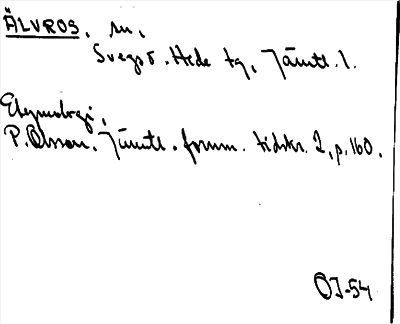 ÄLVROS, sn,
Svegs o. Hede tg, Jämtl. l.
Etymologi,
P. Olsson, Jämtl. fornm. tidskr. 2, p. 160.
OJ-54